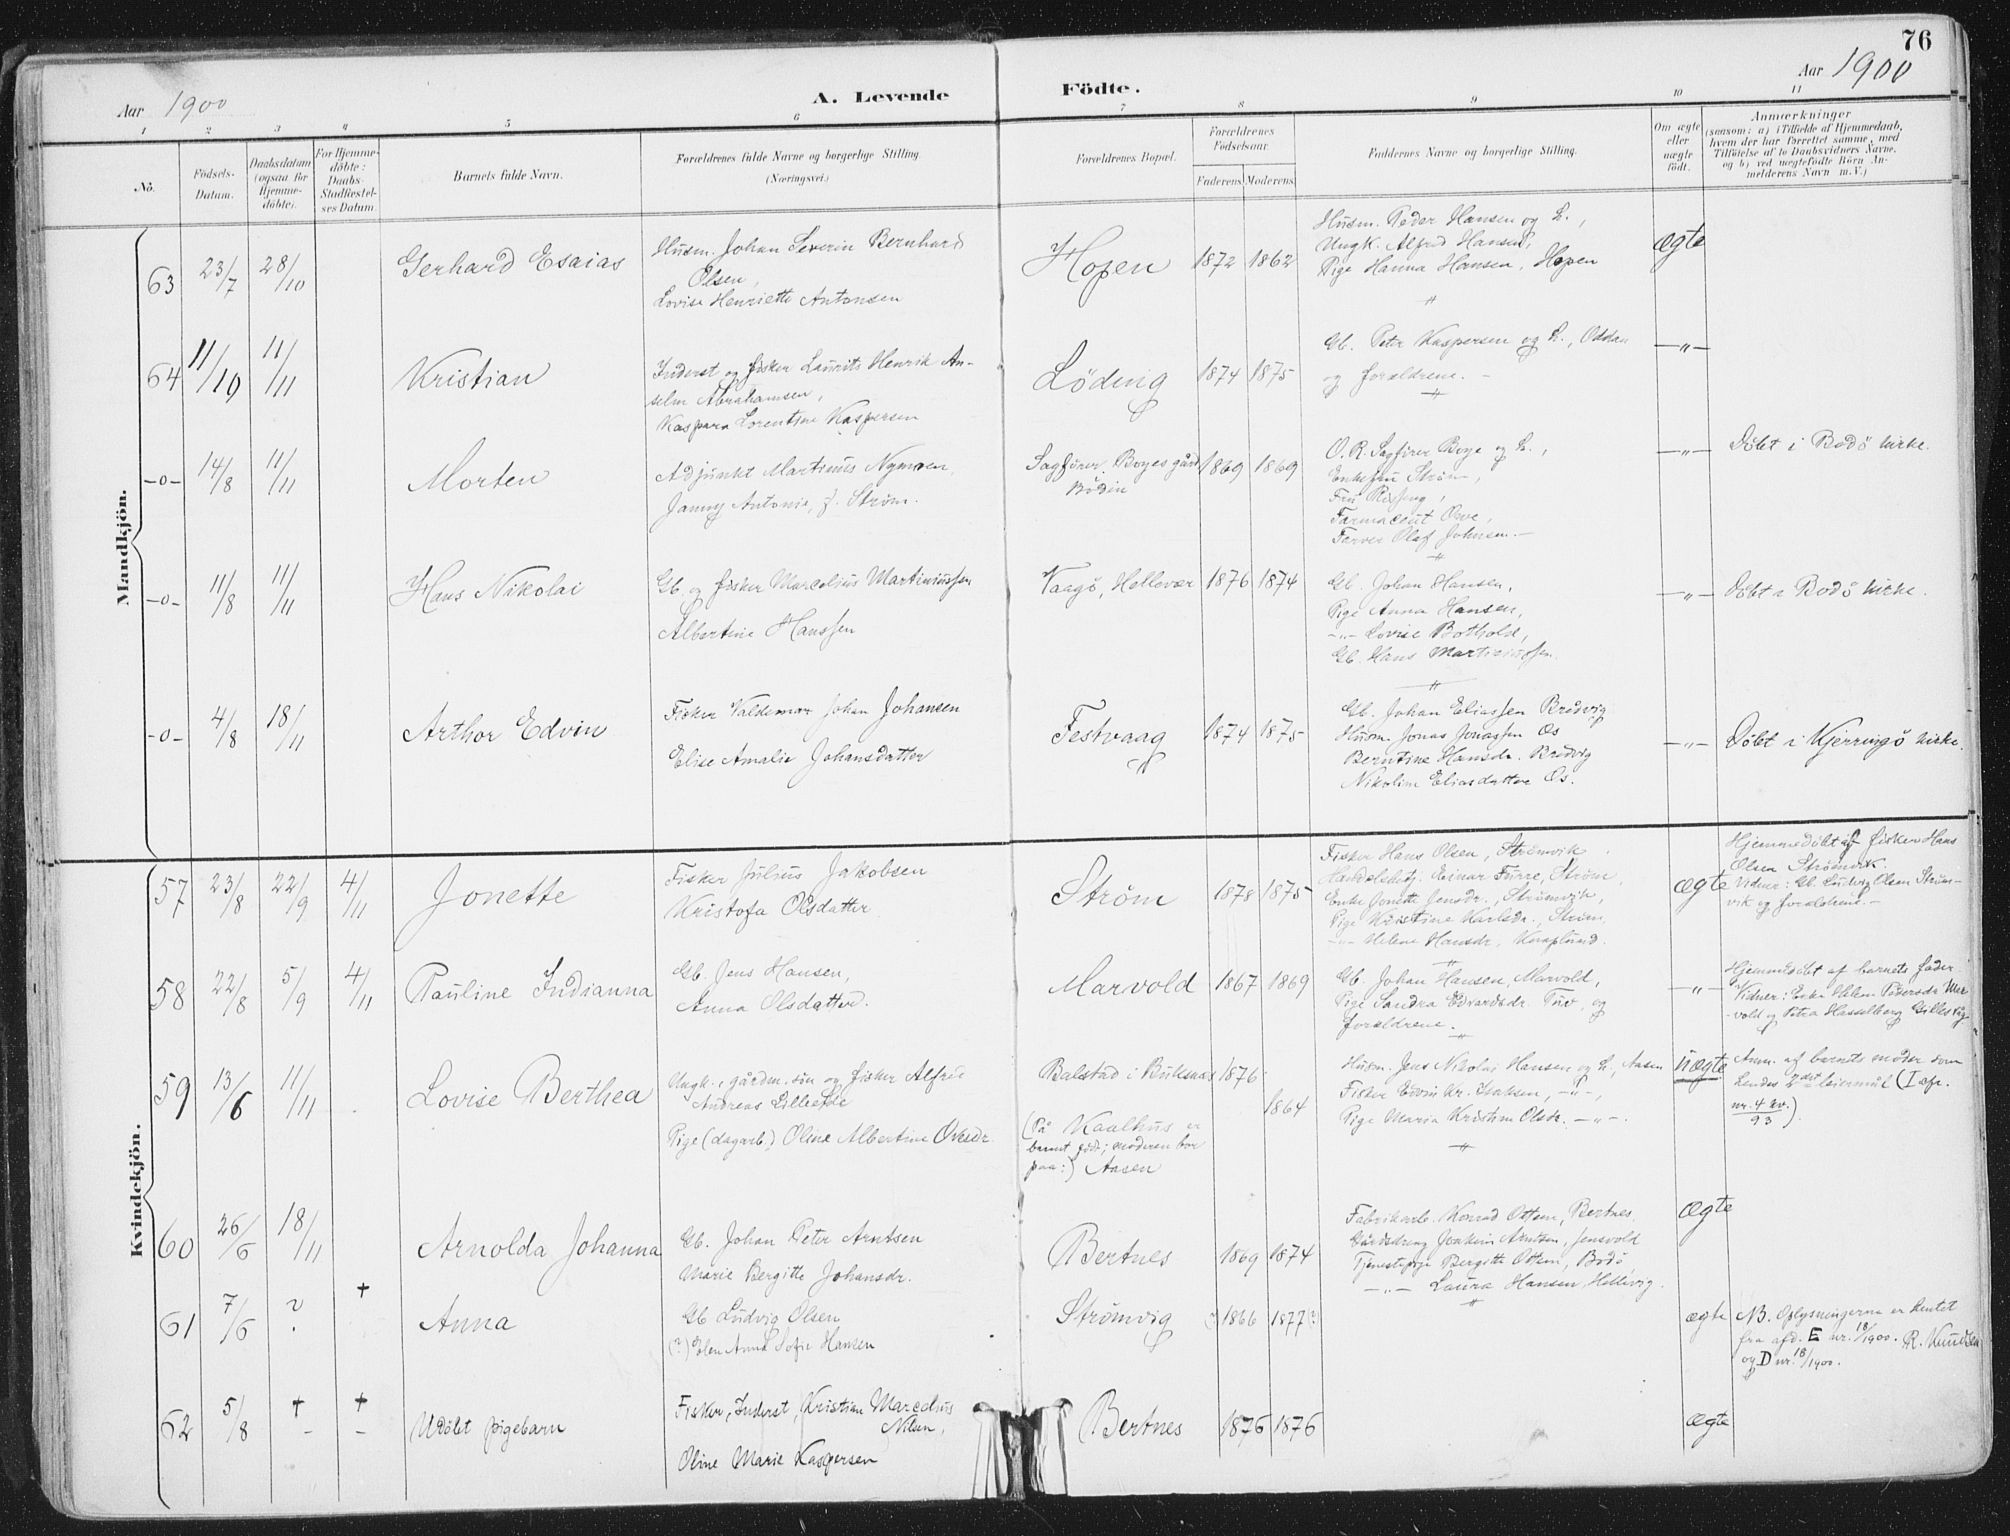 76
Aar 1900
A. Levende
Födte.
Aar 1900
1 2 3 4 5 6 7 8 9 10 11
No.
Födsels-
Datum.
Daabsdatum
(ogsaa for
Hjemme-
döbte).
For Hjemme-
döbte:
Daabs-
Stadfæstel-
ses Datum.
Barnets fulde Navn.
Forældrenes fulde Navne og borgerlige Stilling.
(Næringsvei.)
Forældrenes Bopæl.
Forældrenes
Födselsaar.
Faderens Moderens
Faddernes Navne og borgerlige Stilling.
Om ægte
eller
uægte
födt.
Anmærkninger
(saasom: a) i Tilfælde af Hjemmedaab,
hvem der har forrettet samme, med
Tilföielse af to Daabsvidners Navne,
og b) ved uægtefödte Börn An-
melderens Navn m. V.)
Mandkjön.
63 23/7 28/10
Gerhard Esaias
Husm. Johan Severin Bernhard
Olsen,
Lovise Henriette Antonsen
Hopen
1872 1862
Husm. Peder Hansen og h.,
Ungk. Alfred Hansen,
Pige Hanna Hansen, Hopen
"
ægte
64 11/10 11/11
Kristian
Inderst og fisker Laurits Henrik An-
selm Abrahamsen,
Kaspara Lorentine Kaspersen
Löding
1874 1875
Gb. Peter Kaspersen og h., Oddan
og forældrene. -
"
-"-
-o- 14/8 11/11
Morten
Adjunkt Martinus
Janny Antonie, f. Strøm.
Sagfører Boyes gård
Bodin
1869 1869
O.R. Sagfører Boye og h.,
Enkefru Strøm,
Fru
Farmaceut
Farver Olaf Johnsen. -
"
-"-
Döbt i Bodö kirke.
-o- 11/8 11/11
Hans Nikolai
Gb. og fisker Marcelius Martiniussen
Albertine Hanssen
Vaagö, Hellevær
1876 1874
Gb. Johan Hansen,
Pige Anna Hansen,
-"- Lovise Bothold,
Gb. Hans Martiniussen.
"
-"-
Döbt i Bodö kirke.
-o- 4/8 18/11
Arthor Edvin
Fisker Valdemar Johan Johansen
Elise Amalie Johansdatter
Festvaag
1874 1875
Gb. Johan Eliassen Bredvig
Husm. Jonas Jonassen Os
Berntine Hansdr. Bredvig
Nikoline Eliasdatter Os.
-"-
Döbt i Kjerringö kirke.
Kvindekjön.
57 23/8 22/9 4/11
Jonette
Fisker Julius Jakobsen
Kristofa Olsdatter
Strøm
1878 1875
Fisker Hans Olsen, Strømvik
Handelsbetj. Einar Furre, Strøm,
Enke Jonette Jensdr., Strømvik,
Pige Kristine Karlsdr., Strøm,
-"- Helene Hansdr, Knaplund.
"
ægte
Hjemmedöbt af fisker Hans
Olsen Strømvik.
Vidner: Gb. Ludvig Olsen Strøm-
vik og forældrene. -
58 22/8 5/9 4/11
Pauline Indianna
Gb. Jens Hansen,
Anna Olsdatter.
Marvold
1867 1869
Gb. Johan Hansen, Marvold,
Pige Sandra Edvardsdr. Tuv, og
forældrene. -
"
-"-
Hjemmedöbt af barnets fader.
Vidner: Enke Helene Pedersdr. Mar-
vold og Petra Hasselberg Gillesvåg
59 13/6 11/11
Lovise Berthea
Ungk., gårdm. søn og fisker Alfred
Andreas Lilleeide
Pige (dagarb.) Oline Albertine Ovesdr.
Balstad i Buksnæs
(På Kaalhus er
barnet født; moderen bor
paa:) Aasen
1876
1864
Husm. Jens Nikolai Hansen og h., Aasen
Fisker Edvin Kr. Isaksen, -"-,
Pige Maria Kristine Olsdr. -"-.
"
uægte
Anm. af barnets moder som
hendes 2det leiermål (I cfr.
nr. 4 kv./93).
60 26/6 18/11
Arnolda Johanna
Gb. Johan Peter Arntsen
Marie Bergitte Johansdr.
Bertnes
1869 1874
Fabrikarb. Konrad Ottesen, Bertnes
Gårdsdreng Joakim Arntsen, Jensvold
Tjenestepige Bergitte Ottesen, Bodö,
-"- Laura Hansen, Hellevig.
"
ægte
61 7/6 ? +
Anna
Gb Ludvig Olsen
(?) Elen Anna Sofie Hansen
Strømvig
(?) 1866 1877 (?)
ægte
NB. Oplysningerne er hentet
fra afd. E nr. 18/1900. R. Knudsen
og D nr. 18/1900.
62 5/8 + - + -
Udöbt pigebarn
Fisker, Inderst, Kristian Marcelius
Nilsen,
Oline Marie Kaspersen
Bertnes
1876 1876
ægte